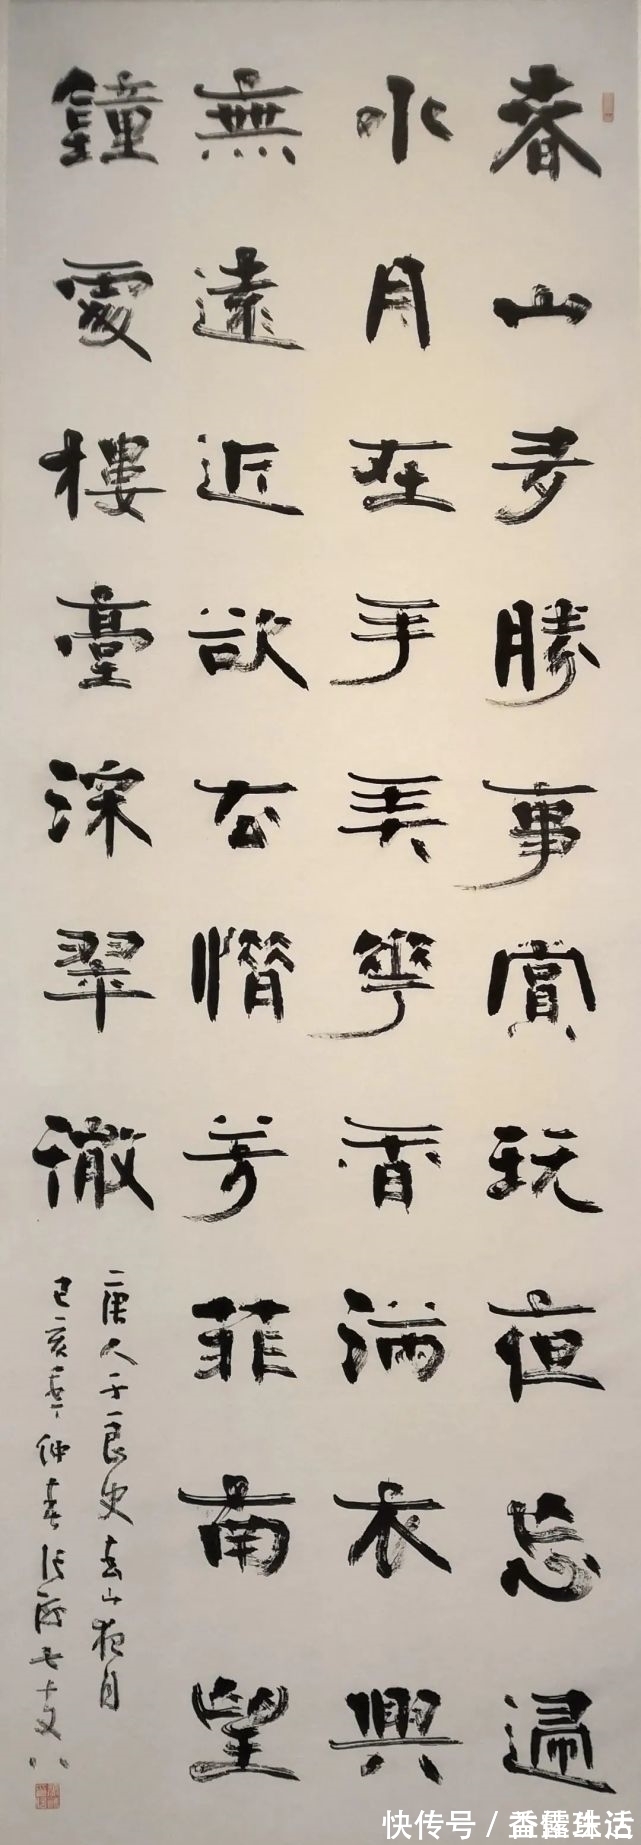 春山多勝事賞玩夜忘歸
水月在手弄華香滿衣興
無遠近欲去惜芳菲南望
鐘處樓臺深翠微
唐人于良史春山夜月
己亥年仲春張海七十又八
快传号 /